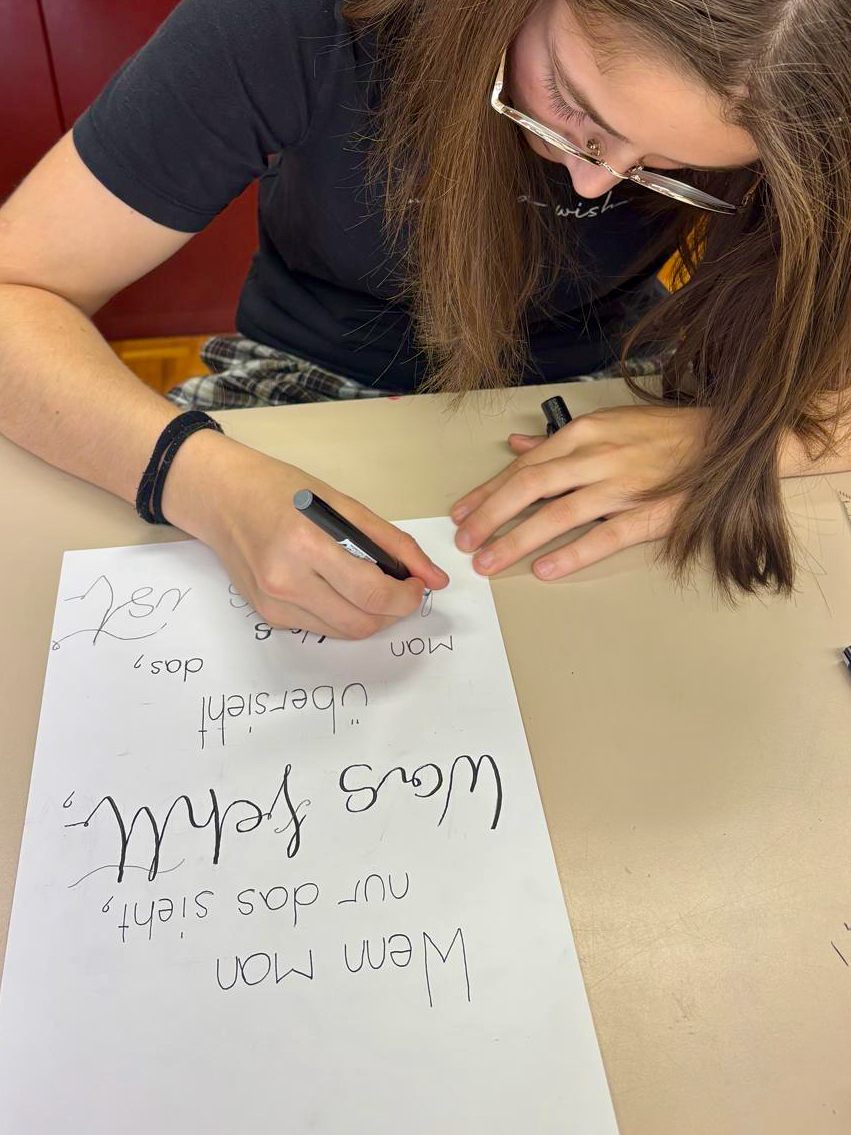 Wenn man
nur das sieht,
Was fehlt,
übersieht
man das,
ist
wish